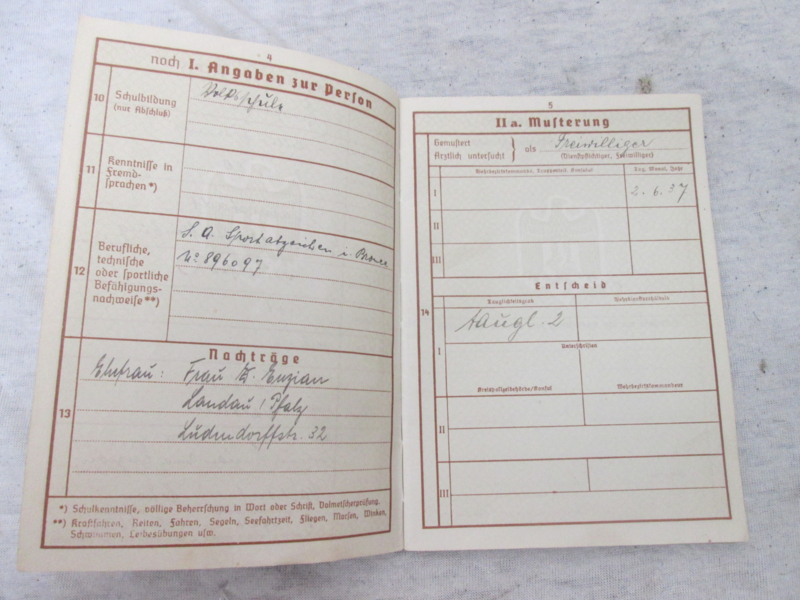 4
noch I. Angaben zur Person
10 Schulbildung
(nur Abschluß)
Volksschule
11 Kenntnisse in
Fremd-
sprachen*)
12 Berufliche,
technische
oder sportliche
Befähigungs-
nachweise**)
S. A. Sportabzeichen i. Bronce
No 896097
Nachträge
13
Ehefrau: Frau E. Enzian
Landau / Pfalz
Ludendorffstr. 32
*) Schulkenntnisse, völlige Beherrschung in Wort oder Schrift, Dolmetscherprüfung.
**) Kraftfahren, Reiten, Fahren, Segeln, Seefahrtzeit, Fliegen, Morsen, Winken,
Schwimmen, Leibesübungen usw.
5
II a. Musterung
Gemustert
Ärztlich untersucht } als Freiwilliger
(Dienstpflichtiger, Freiwilliger)
Tag, Monat, Jahr
I 2. 6. 37
II
III
Entscheid
14 Tauglichkeitsgrad
Taugl. 2
I Unterschriften
Kreispolizeibehörde/Konsul Wehrbezirkskommandeur
II
III